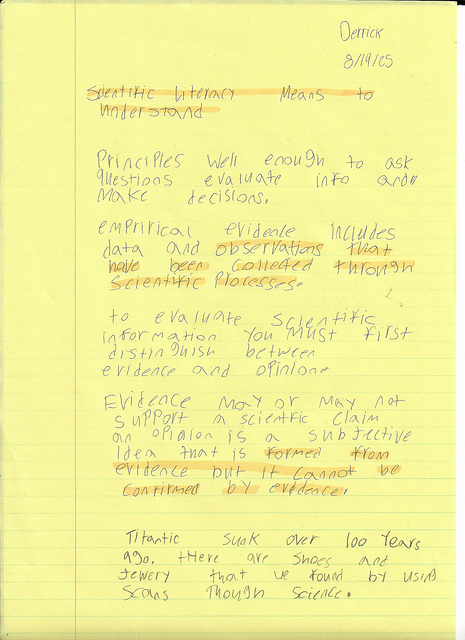 Derrick
8/19/25
Scientific Literacy Means to
understand
Principles well enough to ask
questions evaluate info and
make decisions.
emprirical evidence includes
data and observations that
have been collected through
Scientific Processes.
to evaluate scientific
information you must first
distinguish between
evidence and opinion.
Evidence may or may not
support a scientific claim
an opinion is a subjective
idea that is formed from
evidence but it cannot be
confirmed by evidence.
Titantic sunk over 100 years
ago. there are shoes and
jewery that we found by using
scans though science.